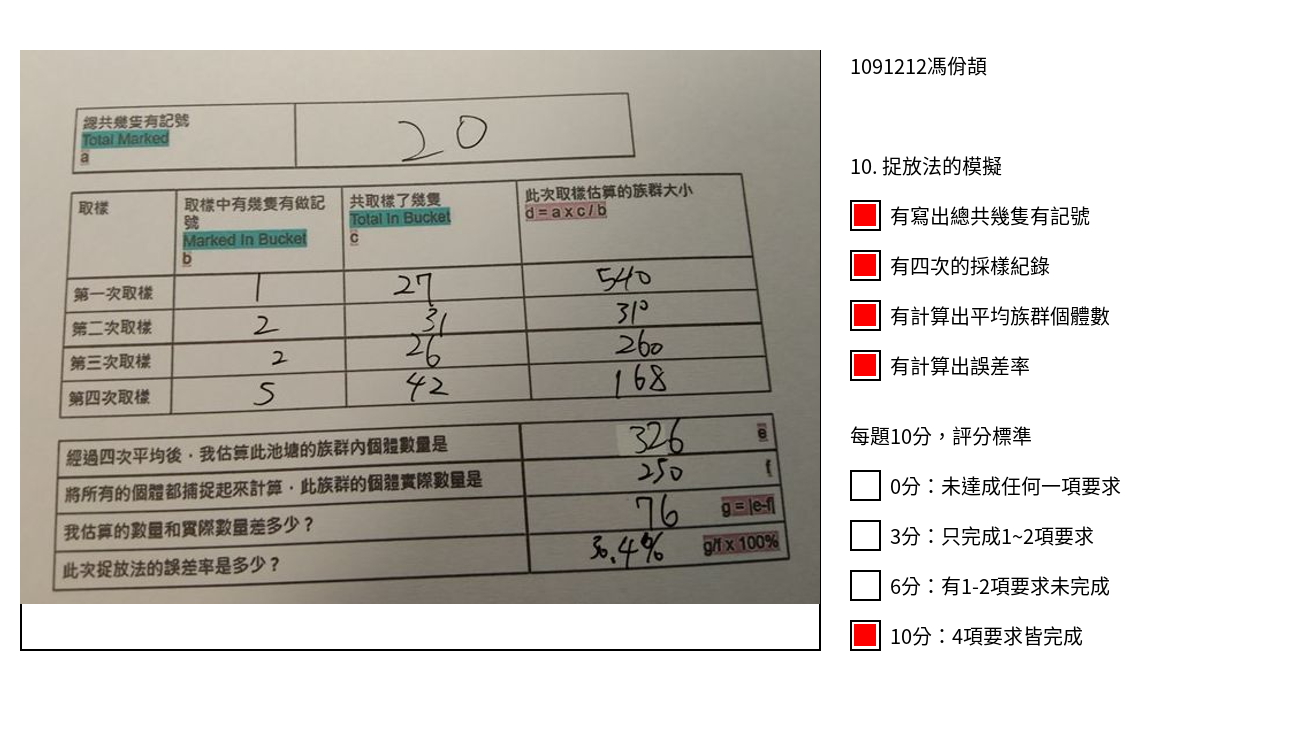 總共幾隻有記號
Total Marked
a
20
取樣
取樣中有幾隻有做記號
Marked In Bucket
b
共取樣了幾隻
Total In Bucket
c
此次取樣估算的族群大小
d = a x c / b
第一次取樣 1 27 540
第二次取樣 2 31 310
第三次取樣 2 26 260
第四次取樣 5 42 168
經過四次平均後，我估算此池塘的族群內個體數量是 326 e
將所有的個體都捕捉起來計算，此族群的個體實際數量是 250 f
我估算的數量和實際數量差多少？ 76 g = |e-f|
此次捉放法的誤差率是多少？ 30.4% g/f x 100%
1091212馮佾頡
10. 捉放法的模擬
有寫出總共幾隻有記號
有四次的採樣紀錄
有計算出平均族群個體數
有計算出誤差率
每題10分，評分標準
0分：未達成任何一項要求
3分：只完成1~2項要求
6分：有1-2項要求未完成
10分：4項要求皆完成